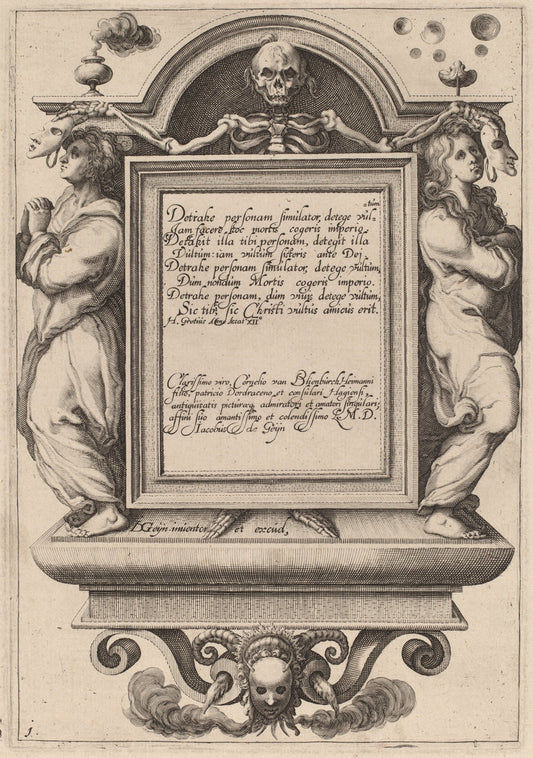 Detrahe personam simulator, detege vul-
tum
Iam facere hoc mortis cogeris imperio
Detrahit illa tibi personam, detegit illa
Vultum: iam vultum sisteris ante Dei
Detrahe personam simulator, detege vultum,
Dum nondum Mortis cogeris imperio.
Detrahe personam, dum vivis detege vultum,
Sic tibi, sic Christi vultus amicus erit.
H. Grotius Anno aetat XII
Clarissimo viro, Cornelio van Blienburch, Heimanni
filio, patricio Dordraceno et consulari Hagiensi,
antiquitatis picturaeq. admiratori et amatori singulari:
affini suo amantissimo et colendissimo L.M.D.
Iacobus de Geijn
DGeijn inventor et excud,
1.